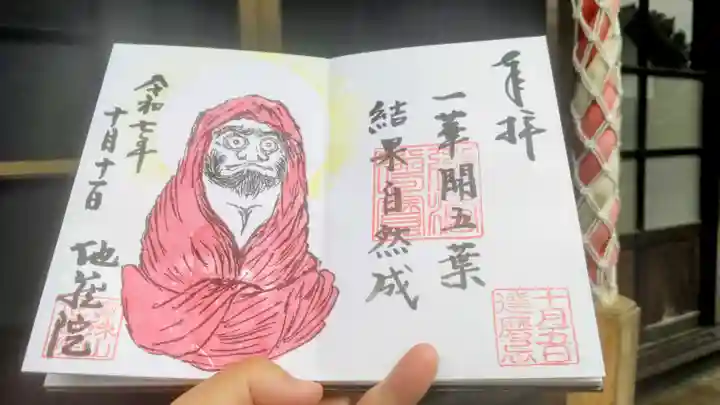 奉拝
一華開五葉
結果自然成
十月五日
達磨忌
令和七年
十月十日
地蔵院